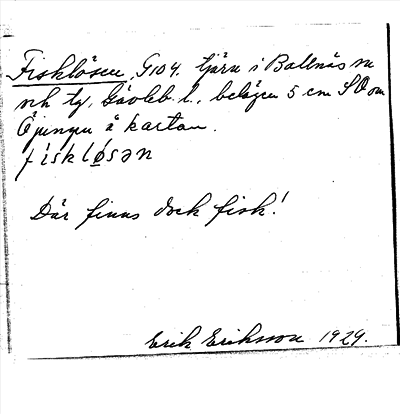 Fisklösen, G104. tjärn i Bollnäs sn
och tg, Gävleb. l., belägen 5 cm SO om
Öjungen å kartan.
fiskløsən
Där finns dock fisk!
Erik Eriksson 1929.